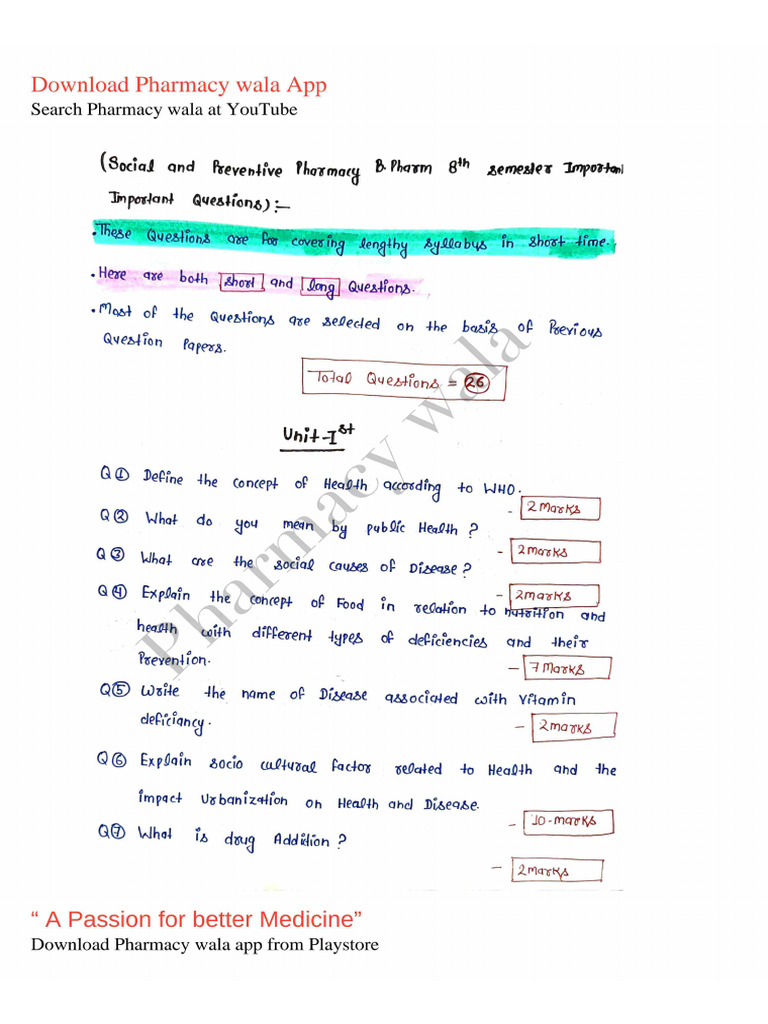 Download Pharmacy wala App
Search Pharmacy wala at YouTube
(Social and Preventive Pharmacy B.Pharm 8th semester Important
Important Questions):-
• These Questions are for covering lengthy syllabus in short time.
• Here are both short and long Questions.
• Most of the Questions are selected on the basis of Previous
Question Papers.
Total Questions = 26
Unit-Ist
Q① Define the concept of Health according to WHO.
- 2 marks
Q② What do you mean by public Health ?
- 2 marks
Q③ What are the social causes of Disease ?
- 2 marks
Q④ Explain the concept of Food in relation to nutrition and
health with different types of deficiencies and their
Prevention.
- 7 marks
Q⑤ Write the name of Disease associated with Vitamin
deficiancy.
- 2 marks
Q⑥ Explain socio cultural factor related to Health and the
impact Urbanization on Health and Disease.
- 10-marks
Q⑦ What is drug Addiction ?
- 2 marks
Pharmacy wala
“ A Passion for better Medicine”
Download Pharmacy wala app from Playstore